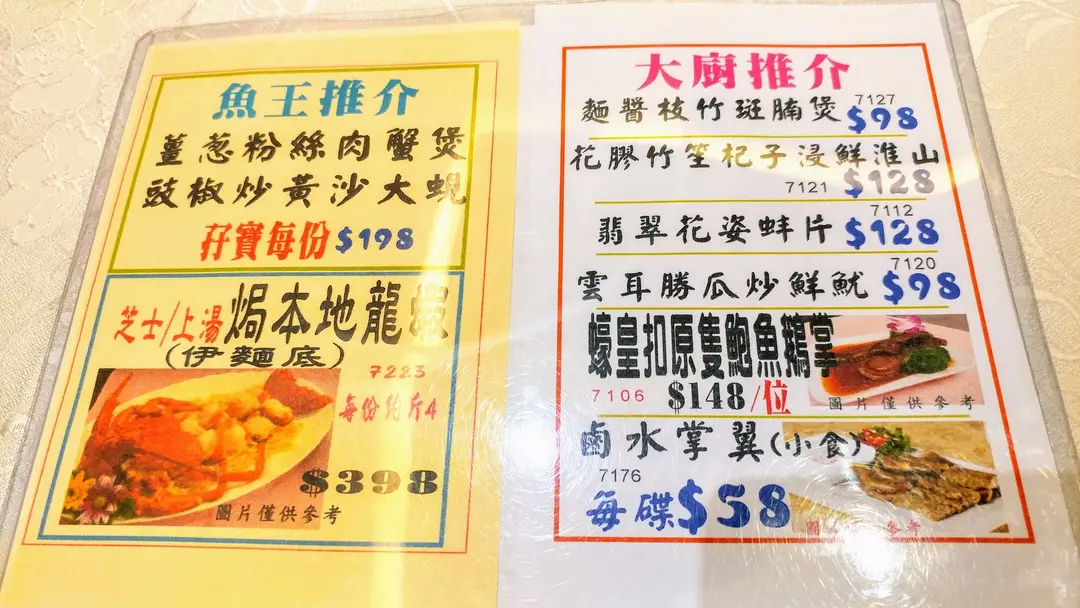 魚王推介
薑葱粉絲肉蟹煲
豉椒炒黃沙大蜆
孖寶每份$198
芝士/上湯焗本地龍蝦
(伊麵底)
7223
每份約斤4
$398
圖片僅供參考
大廚推介
麵醬枝竹斑腩煲 7127 $98
花膠竹笙杞子浸鮮淮山
7121 $128
翡翠花姿蚌片 7112 $128
雲耳勝瓜炒鮮魷 7120 $98
蠔皇扣原隻鮑魚鵝掌
7106 $148/位
圖片僅供參考
鹵水掌翼(小食)
7176
每碟$58
圖片僅供參考